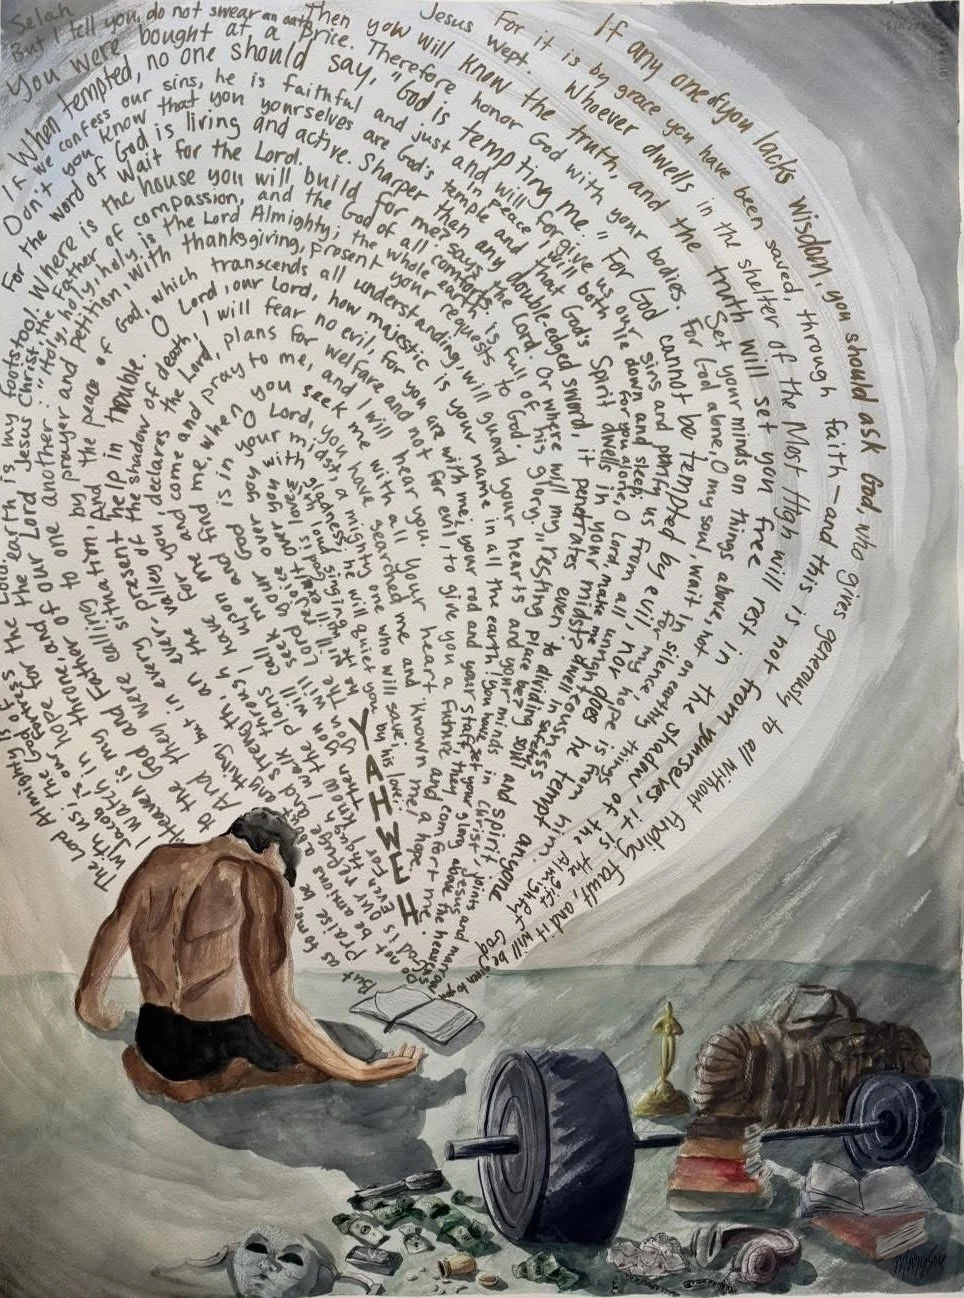 Selah
But I tell you, do not swear an oath
Jesus wept.
If any one of you lacks wisdom, you should ask God, who gives generously to all without finding fault, and it will be given to you
For it is by grace you have been saved, through faith—and this is not from yourselves, it is the gift of God
Whoever dwells in the shelter of the Most High will rest in the shadow of the Almighty
Then you will know the truth, and the truth will set you free
Set your minds on things above, not on earthly things
You were bought at a price. Therefore honor God with your bodies.
For God alone, O my soul, wait in silence, for my hope is from him.
When tempted, no one should say, "God is tempting me." For God cannot be tempted by evil, nor does he tempt anyone
If we confess our sins, he is faithful and just and will forgive us our sins and purify us from all unrighteousness
in peace I will both lie down and sleep; for you alone, O Lord, make me dwell in safety
Don't you know that you yourselves are God's temple and that God's Spirit dwells in your midst?
For the word of God is living and active. Sharper than any double-edged sword, it penetrates even to dividing soul and spirit, joints and marrow
Wait for the Lord.
Where is the house you will build for me? says the Lord. Or where will my resting place be?
Father of compassion, and the God of all comfort
"Holy, holy, holy is the Lord Almighty; the whole earth is full of his glory."
by prayer and petition, with thanksgiving, present your requests to God.
And the peace of God, which transcends all understanding, will guard your hearts and your minds in Christ Jesus
O Lord, our Lord, how majestic is your name in all the earth! You have set your glory above the heavens
valley of the shadow of death, I will fear no evil, for you are with me; your rod and your staff, they comfort me.
for you, declares the Lord, plans for welfare and not for evil, to give you a future and a hope.
come and pray to me, and I will hear you.
find me, when you seek me with all your heart
O Lord, you have searched me and known me!
is in your midst, a mighty one who will save;
over you with gladness; he will quiet you by his love;
with loud singing
YAHWEH
The Lord Almighty is with us; the God of Jacob is our fortress
Heaven is my throne, and the earth is my footstool.
And they were calling to one another:
ever-present help in trouble.